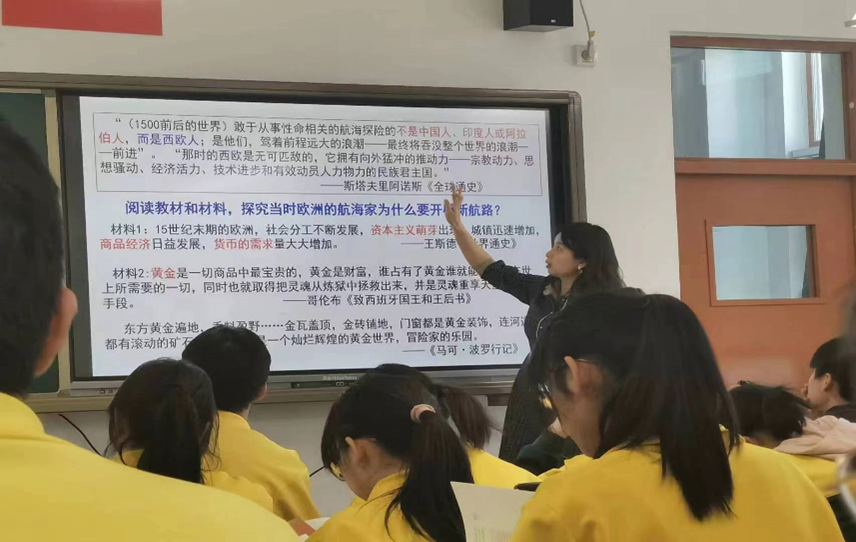 “（1500前后的世界）敢于从事性命相关的航海探险的不是中国人、印度人或阿拉
伯人，而是西欧人；是他们，驾着前程远大的浪潮——最终将吞没整个世界的浪潮—
—前进”。 “那时的西欧是无可匹敌的，它拥有向外猛冲的推动力——宗教动力、思
想骚动、经济活力、技术进步和有效动员人力物力的民族君主国。”
——斯塔夫里阿诺斯《全球通史》
阅读教材和材料，探究当时欧洲的航海家为什么要开 新航路？
材料1：15世纪末期的欧洲，社会分工不断发展，资本主义萌芽出 城镇迅速增加，
商品经济日益发展，货币的需求量大大增加。 ——王斯德 界通史》
材料2:黄金是一切商品中最宝贵的，黄金是财富，谁占有了黄金谁就能 在世
上所需要的一切，同时也就取得把灵魂从炼狱中拯救出来，并是灵魂重享天
手段。 ——哥伦布《致西班牙国王和王后书》
东方黄金遍地，香料盈野……金瓦盖顶，金砖铺地，门窗都是黄金装饰，连河
都有滚动的矿石 是一个灿烂辉煌的黄金世界，冒险家的乐园。
——《马可·波罗行记》